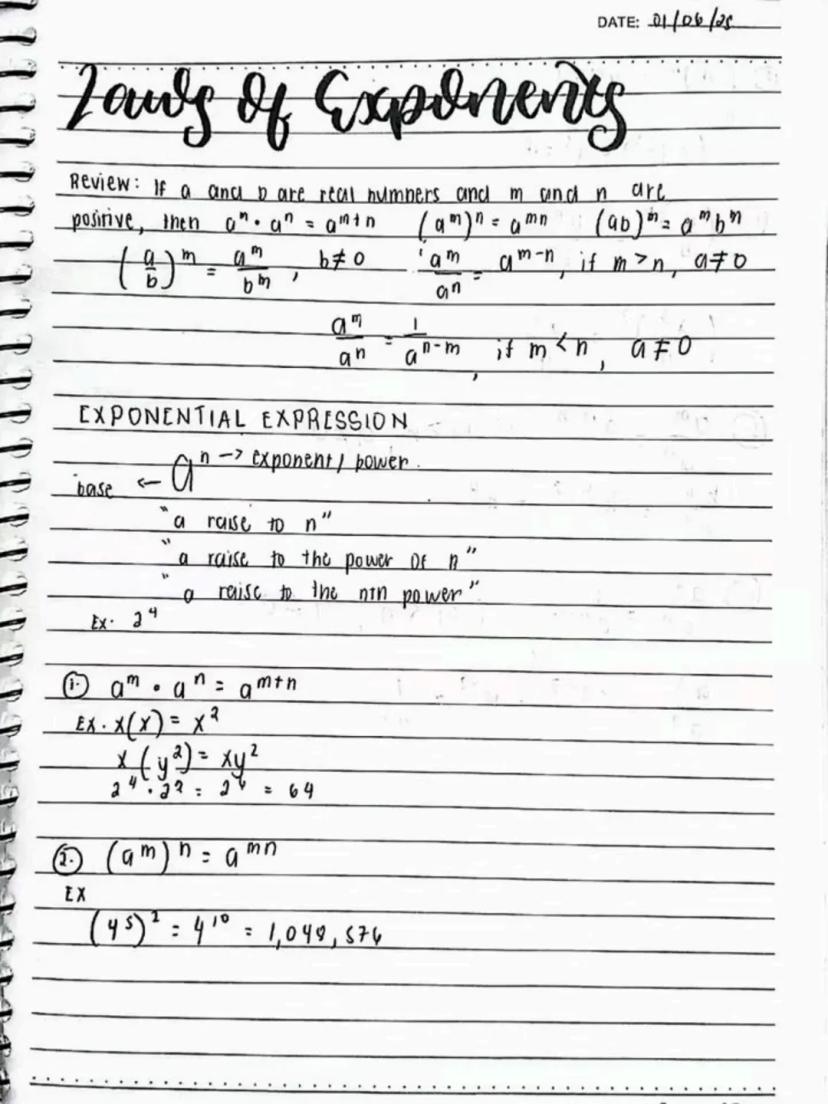 DATE: 01/06/25
Laws of Exponents
Review: If a and b are real numners and m and n are
positive, then aⁿ • aⁿ = aᵐ⁺ⁿ (aᵐ)ⁿ = aᵐⁿ (ab)ᵐ = aᵐbᵐ
(a/b)ᵐ = aᵐ/bᵐ, b≠0 aᵐ/aⁿ = aᵐ⁻ⁿ, if m>n, a≠0
aᵐ/aⁿ = 1/aⁿ⁻ᵐ, if m<n, a≠0
EXPONENTIAL EXPRESSION
base ← aⁿ → exponent/ power.
"a raise to n"
"a raise to the power of n"
"a raise to the nth power"
Ex. 2⁴
1. aᵐ • aⁿ = aᵐ⁺ⁿ
Ex. x(x) = x²
x(y²) = xy²
2⁴ • 2² = 2⁶ = 64
2. (aᵐ)ⁿ = aᵐⁿ
EX
(4⁵)² = 4¹⁰ = 1,048,576